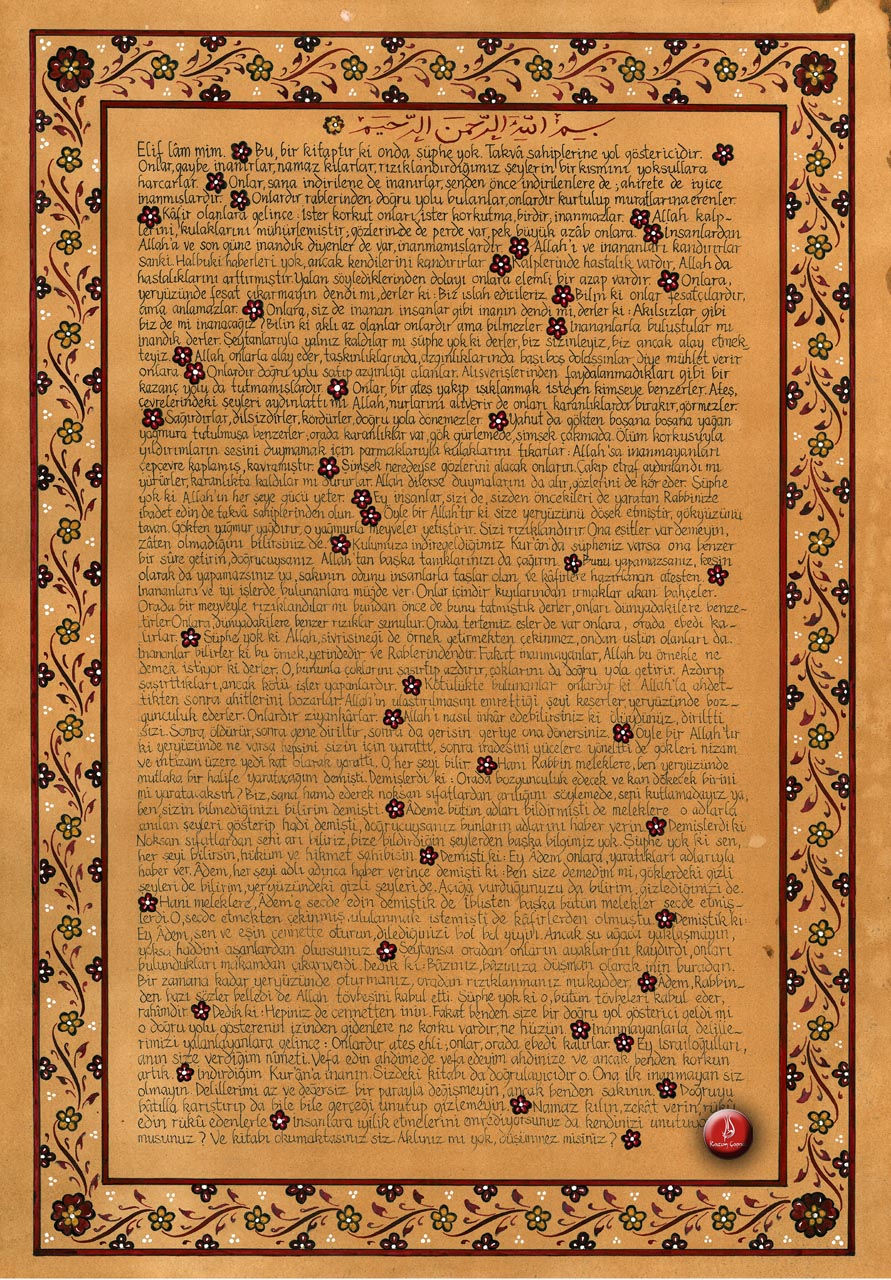 بسم الله الرحمن الرحيم
Elif lâm mim. Bu, bir kitaptır ki onda şüphe yok. Takvâ sahiplerine yol göstericidir.
Onlar, gaybe inanırlar, namaz kılarlar, rızıklandırdığımız şeylerin bir kısmını yoksullara
harcarlar. Onlar, sana indirilene de inanırlar, senden önce indirilenlere de; ahirete de iyice
inanmışlardır. Onlardır rablerinden doğru yolu bulanlar, onlardır kurtulup muratlarına erenler.
Kâfir olanlara gelince: İster korkut onları, ister korkutma, birdir, inanmazlar. Allah kalp-
lerini, kulaklarını mühürlemiştir; gözlerinde de perde var, pek büyük azâb onlara. İnsanlardan
Allah'a ve son güne inandık diyenler de var, inanmamışlardır. Allah'ı ve inananları kandırırlar
sanki. Halbuki haberleri yok, ancak kendilerini kandırırlar. Kalplerinde hastalık vardır, Allah da
hastalıklarını arttırmıştır. Yalan söylediklerinden dolayı onlara elemli bir azap vardır. Onlara,
yeryüzünde fesat çıkarmayın dendi mi, derler ki: Biz ıslah edicileriz. Bilin ki onlar fesatçılardır,
ama anlamazlar. Onlara, siz de inanan insanlar gibi inanın dendi mi, derler ki: Akılsızlar gibi
biz de mi inanacağız? Bilin ki aklı az olanlar onlardır ama bilmezler. İnananlarla buluştular mı
inandık derler. Şeytanlarıyla yalnız kaldılar mı şüphe yok ki derler, biz sizinleyiz, biz ancak alay etmek-
teyiz. Allah onlarla alay eder, taşkınlıklarında, azgınlıklarında başıboş dolaşsınlar diye mühlet verir
onlara. Onlardır doğru yolu satıp azgınlığı alanlar. Alışverişlerinden faydalanmadıkları gibi bir
kazanç yolu da tutmamışlardır. Onlar, bir ateş yakıp ışıklanmak isteyen kimseye benzerler. Ateş,
çevrelerindeki şeyleri aydınlattı mı Allah, nurlarını alıverir de onları karanlıklarda bırakır, görmezler.
Sağırdırlar, dilsizdirler, kördürler, doğru yola dönemezler. Yahut da gökten boşana boşana yağan
yağmura tutulmuşa benzerler, orada karanlıklar var, gök gürlemede, şimşek çakmada. Ölüm korkusuyla
yıldırımların sesini duymamak için parmaklarıyla kulaklarını tıkarlar: Allah'sa inanmayanları
çepçevre kaplamış, kavramıştır. Şimşek neredeyse gözlerini alacak onların. Çakıp etraf aydınlandı mı
yürürler, karanlıkta kaldılar mı dururlar. Allah dilerse duymalarını da alır, gözlerini de kör eder. Şüphe
yok ki Allah'ın her şeye gücü yeter. Ey insanlar, sizi de, sizden öncekileri de yaratan Rabbinize
ibadet edin de takvâ sahiplerinden olun. Öyle bir Allah'tır ki size yeryüzünü döşek etmiştir, gökyüzünü
tavan. Gökten yağmur yağdırır, o yağmurla meyveler yetiştirir. Sizi rızıklandırır. Ona eşitler var demeyin,
zâten olmadığını bilirsiniz de. Kulumuza indiregeldiğimiz Kur'ân'da şüpheniz varsa ona benzer
bir sûre getirin, doğrucuysanız Allah'tan başka tanıklarınızı da çağırın. Bunu yapamazsanız, kesin
olarak da yapamazsınız ya, sakının odunu insanlarla taşlar olan ve kâfirlere hazırlanan ateşten.
İnananları ve iyi işlerde bulunanlara müjde ver: Onlar içindir kıyılarından ırmaklar akan bahçeler.
Orada bir meyveyle rızıklandılar mı bundan önce de bunu tatmıştık derler, onları dünyadakilere benze-
tirler. Onlara, dünyadakilere benzer rızıklar sunulur. Orada tertemiz eşler de var onlara, orada ebedî ka-
lırlar. Şüphe yok ki Allah, sivrisineği de örnek getirmekten çekinmez, ondan üstün olanları da.
İnananlar bilirler ki bu örnek, yerindedir ve Rablerindendir. Fakat inanmayanlar, Allah bu örnekle ne
demek istiyor ki derler. O, bununla çoklarını şaşırtıp azdırır, çoklarını da doğru yola getirir. Azdırıp
şaşırttıkları, ancak kötü işler yapanlardır. Kötülükte bulunanlar onlardır ki Allah'la ahdet-
tikten sonra ahitlerini bozarlar. Allah'ın ulaştırılmasını emrettiği şeyi keserler, yeryüzünde boz-
gunculuk ederler. Onlardır ziyankârlar. Allah'ı nasıl inkâr edebilirsiniz ki ölüydünüz, diriltti
sizi. Sonra öldürür, sonra gene diriltir, sonra da gerisin geriye ona dönersiniz. Öyle bir Allah'tır
ki yeryüzünde ne varsa hepsini sizin için yarattı, sonra iradesini yücelere yöneltti de gökleri nizam
ve intizam üzere yedi kat olarak yarattı. O, her şeyi bilir. Hani Rabbin meleklere, ben yeryüzünde
mutlaka bir halife yaratacağım demişti. Demişlerdi ki: Orada bozgunculuk edecek ve kan dökecek birini
mi yaratacaksın? Biz, sana hamd ederek noksan sıfatlardan arılığını söylemede, seni kutlamadayız ya,
ben sizin bilmediğinizi bilirim demişti. Âdeme bütün adları bildirmişti de meleklere o adlarla
anılan şeyleri gösterip hadi demişti, doğrucuysanız bunların adlarını haber verin. Demişlerdi ki
Noksan sıfatlardan seni arı biliriz, bize bildirdiğin şeylerden başka bilgimiz yok. Şüphe yok ki sen,
her şeyi bilirsin, hüküm ve hikmet sahibisin. Demişti ki: Ey Âdem, onlara, yaratıkları adlarıyla
haber ver. Âdem, her şeyi adlı adınca haber verince demişti ki: Ben size demedim mi, göklerdeki gizli
şeyleri de bilirim, yeryüzündeki gizli şeyleri de. Açığa vurduğunuzu da bilirim, gizlediğinizi de.
Hani meleklere, Âdem'e secde edin demiştik de İblisten başka bütün melekler secde etmiş-
lerdi. O, secde etmekten çekinmiş, ululanmak istemişti de kâfirlerden olmuştu. Demiştik ki:
Ey Âdem, sen ve eşin cennette oturun, dilediğinizi bol bol yiyin. Ancak şu ağaca yaklaşmayın,
yoksa haddini aşanlardan olursunuz. Şeytansa oradan onların ayaklarını kaydırdı, onları
bulundukları makamdan çıkarıverdi. Dedik ki: Bâzınız, bâzınıza düşman olarak inin buradan.
Bir zamana kadar yeryüzünde oturmanız, oradan rızıklanmanız mukadder. Âdem, Rabbin-
den bazı sözler belledi de Allah tövbesini kabul etti. Şüphe yok ki o, bütün tövbeleri kabul eder,
rahîmdir. Dedik ki: Hepiniz de cennetten inin. Fakat benden size bir doğru yol gösterici geldi mi
o doğru yolu gösterenin izinden gidenlere ne korku vardır, ne hüzün. İnanmayanlarla delille-
rimizi yalanlayanlara gelince: Onlardır ateş ehli; onlar, orada ebedî kalırlar. Ey İsrailoğulları,
anın size verdiğim nîmeti. Vefa edin ahdime de vefa edeyim ahdinize ve ancak benden korkun
artık. İndirdiğim Kur'ân'a inanın. Sizdeki kitabı da doğrulayıcıdır o. Ona ilk inanmayan siz
olmayın. Delillerimi az ve değersiz bir parayla değişmeyin, ancak benden sakının. Doğruyu
bâtılla karıştırıp da bile bile gerçeği unutup gizlemeyin. Namaz kılın, zekât verin, rükû
edin rükû edenlerle. İnsanlara iyilik etmelerini emrediyorsunuz da kendinizi unutuyor
musunuz? Ve kitabı okumaktasınız siz. Aklınız mı yok, düşünmez misiniz?